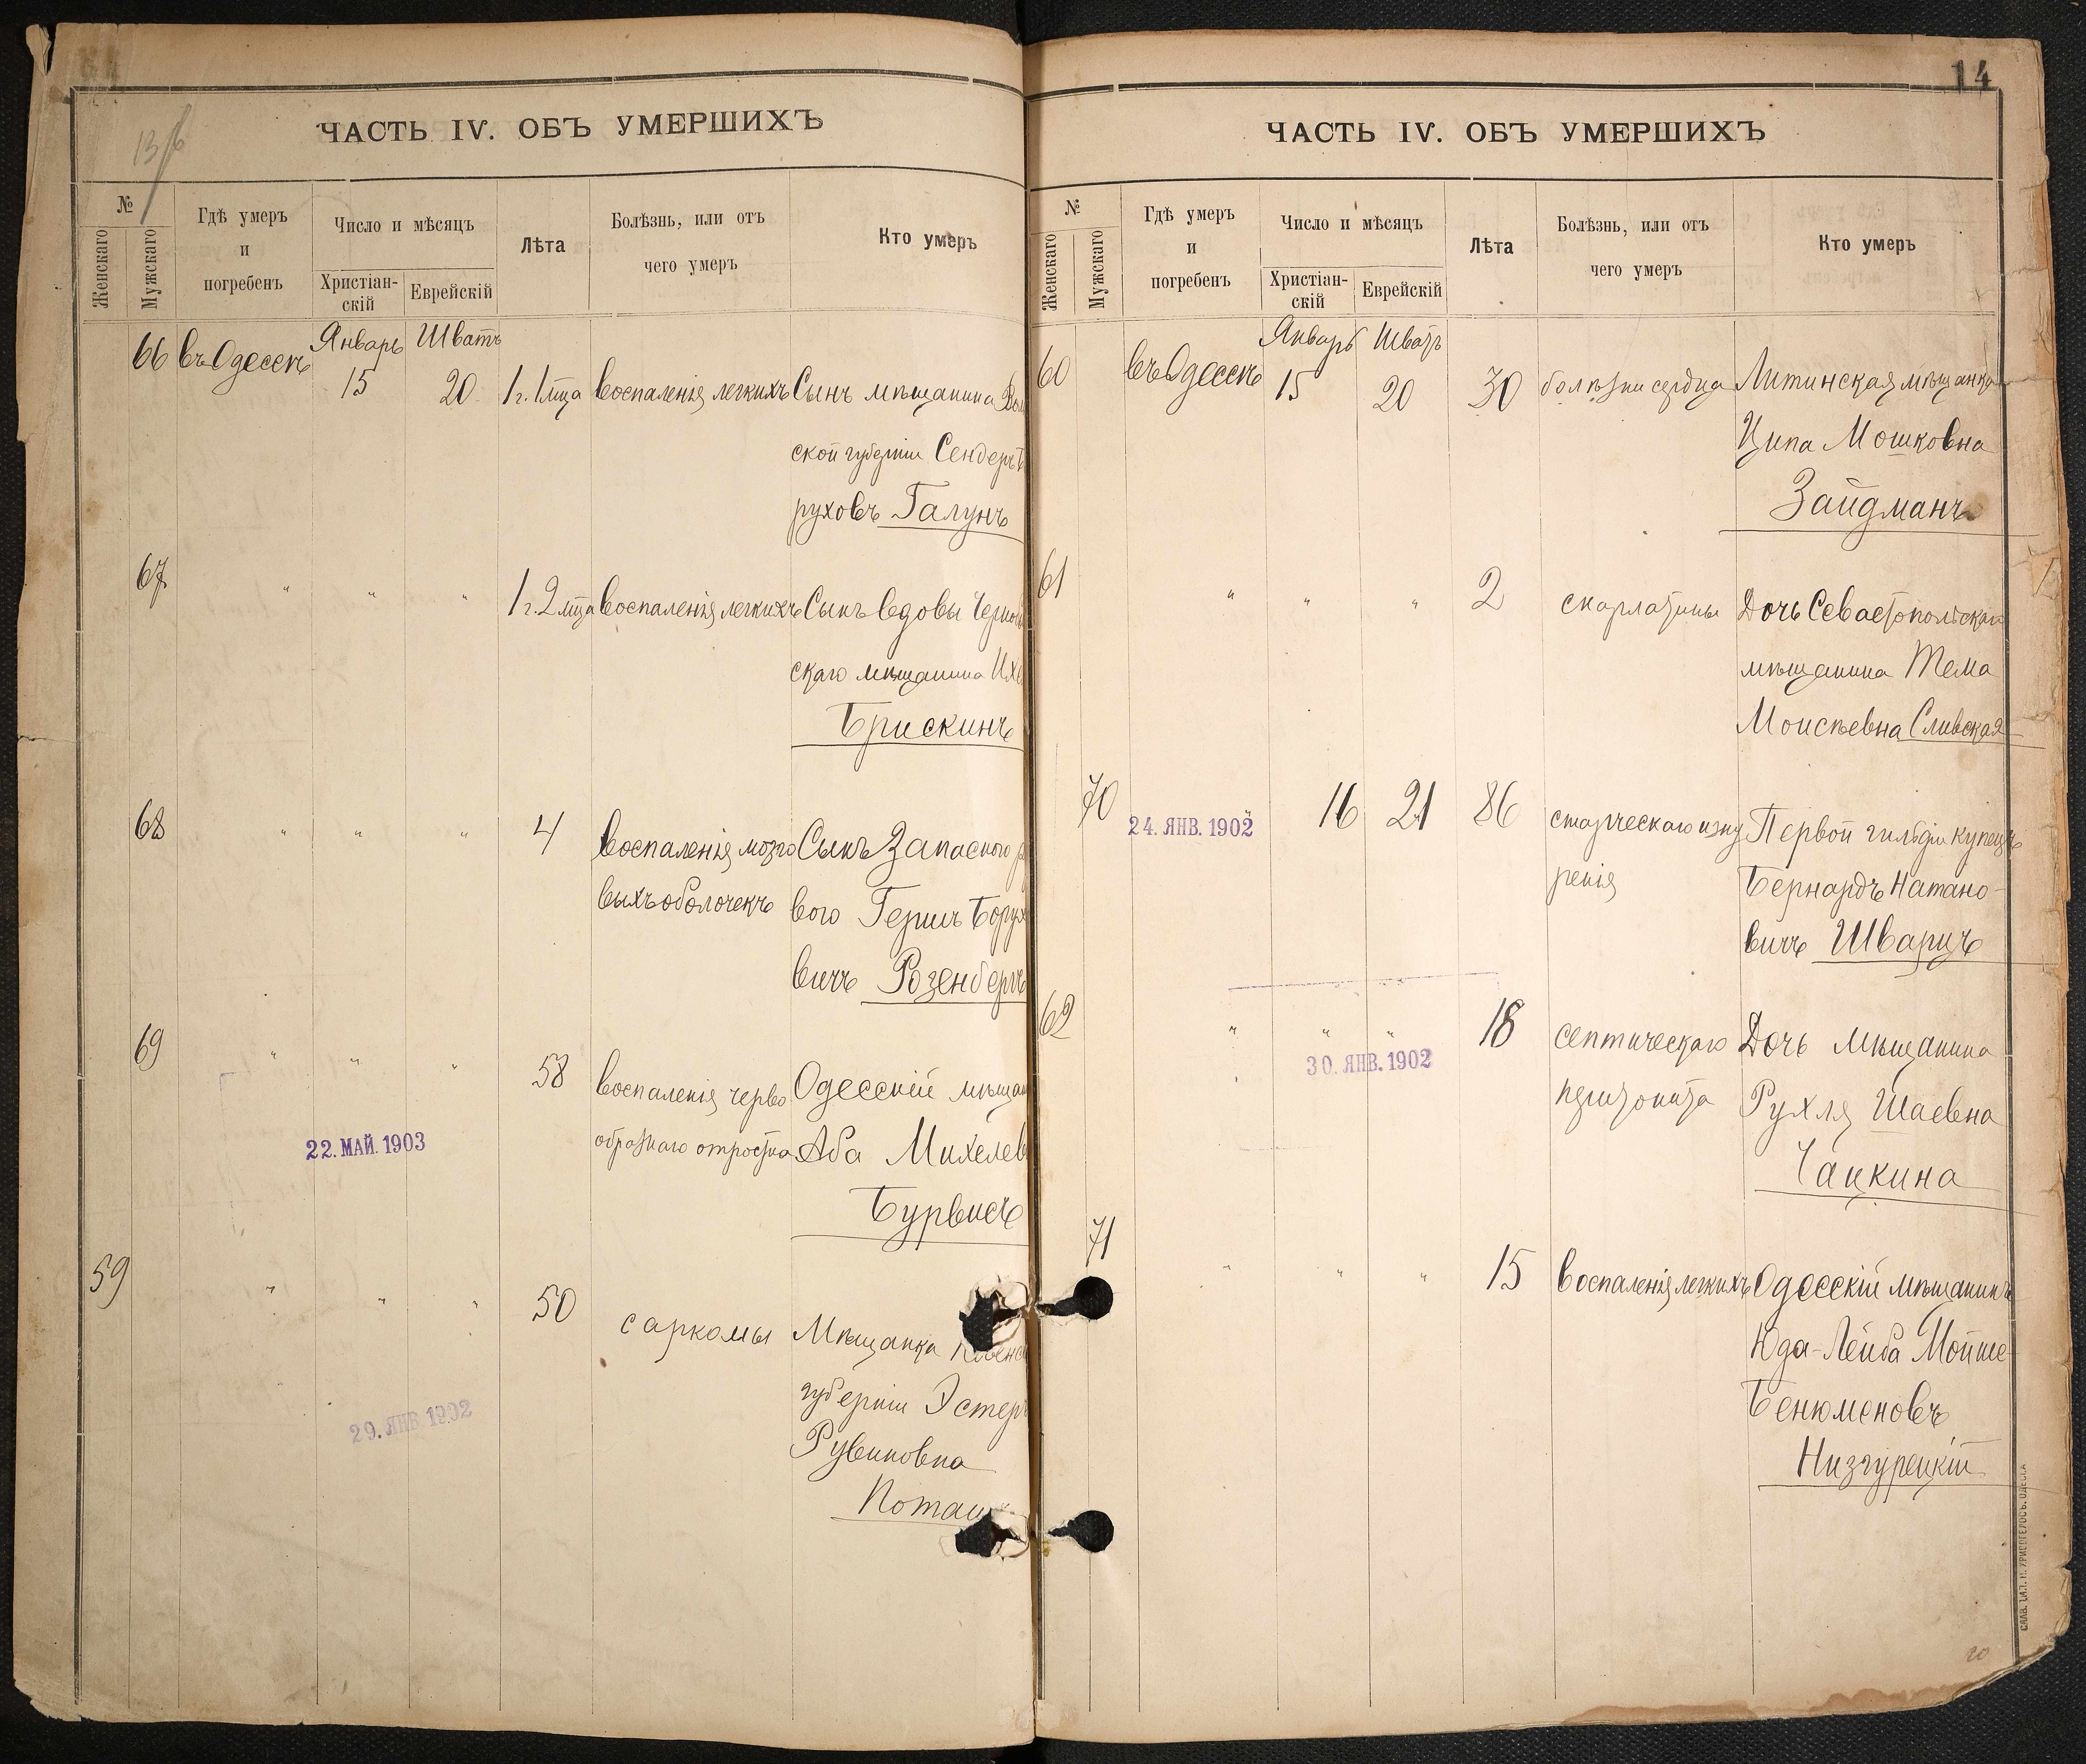 13/б
ЧАСТЬ IV. ОБЪ УМЕРШИХЪ
№
Женскаго
Мужскаго
Гдѣ умеръ
и
погребенъ
Число и мѣсяцъ
Христіан-
скій
Еврейскій
Лѣта
Болѣзнь, или отъ
чего умеръ
Кто умеръ
Январь Шватъ
66 въ Одессѣ 15 20 1 г. 1 мца воспаленія легкихъ Сынъ мѣщанина
ской губерніи Сендеръ
руховъ Галунъ
67 " " " 1 г. 2 мца воспаленія легкихъ Сынъ вдовы
скаго мѣщанина
Брискинъ
68 " " " 4 воспаленія мозго Сынъ Запасного
выхъ оболочекъ вого Гершъ Борух
вичъ Розенбергъ
69 " " " 58 воспаленія черво Одесскій мѣщан
образнаго отростка Аба Михелев
22. МАЙ. 1903
Бурвисъ
59 " " " 50 саркомы Мѣщанка
губерніи Эстеръ
29. ЯНВ. 1902
Рувиновна
Поташ
14
ЧАСТЬ IV. ОБЪ УМЕРШИХЪ
№
Женскаго
Мужскаго
Гдѣ умеръ
и
погребенъ
Число и мѣсяцъ
Христіан-
скій
Еврейскій
Лѣта
Болѣзнь, или отъ
чего умеръ
Кто умеръ
Январь Шватъ
60 въ Одессѣ 15 20 30 болѣзни сердца Литинская мѣщанка
Ципа Мошковна
Зайдманъ
61 " " " 2 скарлатины Дочь Севастопольскаго
мѣщанина Тема
Моисѣевна Сливская
70 " 16 21 86 старческаго изну Первой гильдіи купецъ
24. ЯНВ. 1902
ренія Бернардъ Натано-
вичъ Шварцъ
62 " " " 18 септическаго Дочь мѣщанина
30. ЯНВ. 1902
перитонита Рухля Шаевна
Чацкина
71 " " " 15 воспаленія легкихъ Одесскій мѣщанинъ
Юда-Лейба Мойше-
Бенюменовъ
Низгурецкій
20